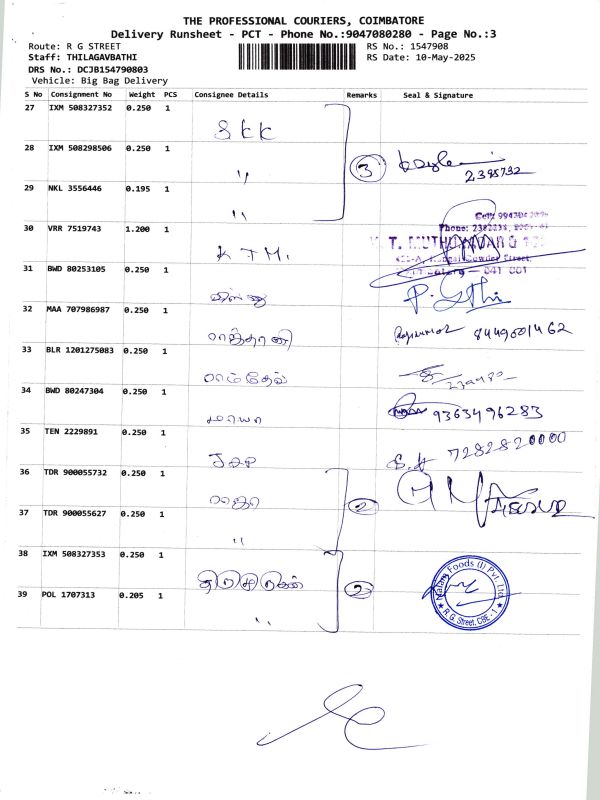 THE PROFESSIONAL COURIERS, COIMBATORE
Delivery Runsheet - PCT - Phone No.:9047080280 - Page No.:3
Route: R G STREET
RS No.: 1547908
Staff: THILAGAVBATHI
RS Date: 10-May-2025
DRS No.: DCJB154790803
Vehicle: Big Bag Delivery
S No Consignment No Weight PCS Consignee Details Remarks Seal & Signature
27 IXM 508327352 0.250 1 SKK
28 IXM 508298506 0.250 1 " 3 2395732
29 NKL 3556446 0.195 1 "
30 VRR 7519743 1.200 1 K T M.
31 BWD 80253105 0.250 1
32 MAA 707986987 0.250 1 ராத்தாணி
33 BLR 1201275083 0.250 1 ராம்தேவ்
34 BWD 80247304 0.250 1 மாயா 9363496283
35 TEN 2229891 0.250 1 7282820000
36 TDR 900055732 0.250 1 ராஜா 2
37 TDR 900055627 0.250 1 "
38 IXM 508327353 0.250 1 2
39 POL 1707313 0.205 1 "
Malani Foods (I) Pvt. Ltd.
R G Street, CBE - 1